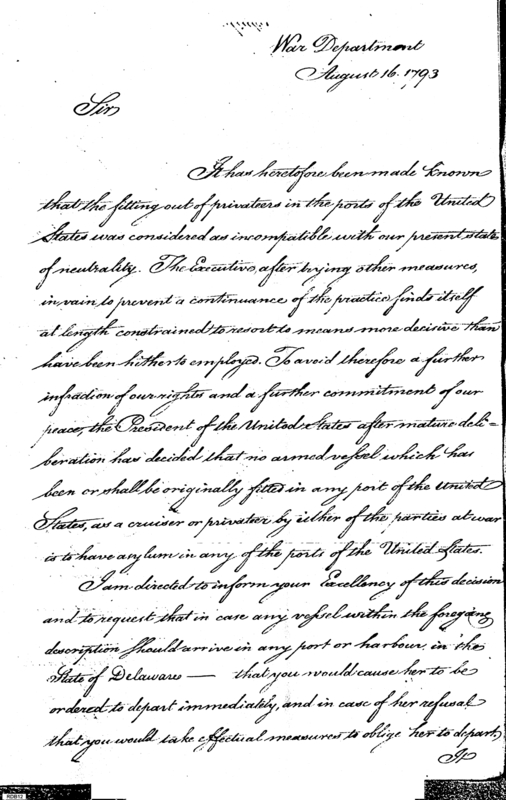 War Department
August 16. 1793
Sir
It has heretofore been made known
that the fitting out of privateers in the ports of the United
States was considered as incompatible with our present state
of neutrality. The Executive, after trying other measures,
in vain, to prevent a continuance of the practice finds itself
at length constrained to resort to means more decisive than
have been hitherto employed. To avoid therefore a further
infraction of our rights and a further commitment of our
peace, the President of the United States after mature deli=
beration has decided that no armed vessel which has
been or shall be originally fitted in any port of the United
States, as a cruiser or privateer by either of the parties at war
is to have asylum in any of the ports of the United States.
I am directed to inform your Excellency of this decision
and to request that in case any vessel within the foregoing
description should arrive in any port or harbour, in the
State of Delaware — that you would cause her to be
ordered to depart immediately, and in case of her refusal
that you would take effectual measures to oblige her to depart,
RDB12